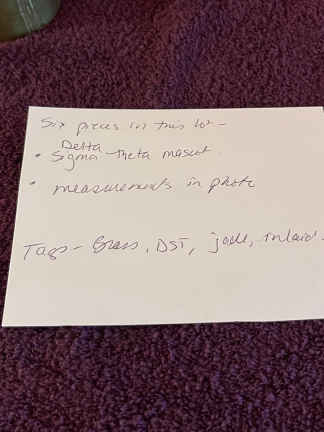 Six pieces in this lot -
Delta
• Sigma Theta mascot
• measurements in photo
Tags - Brass, DST, jade, inlaid -